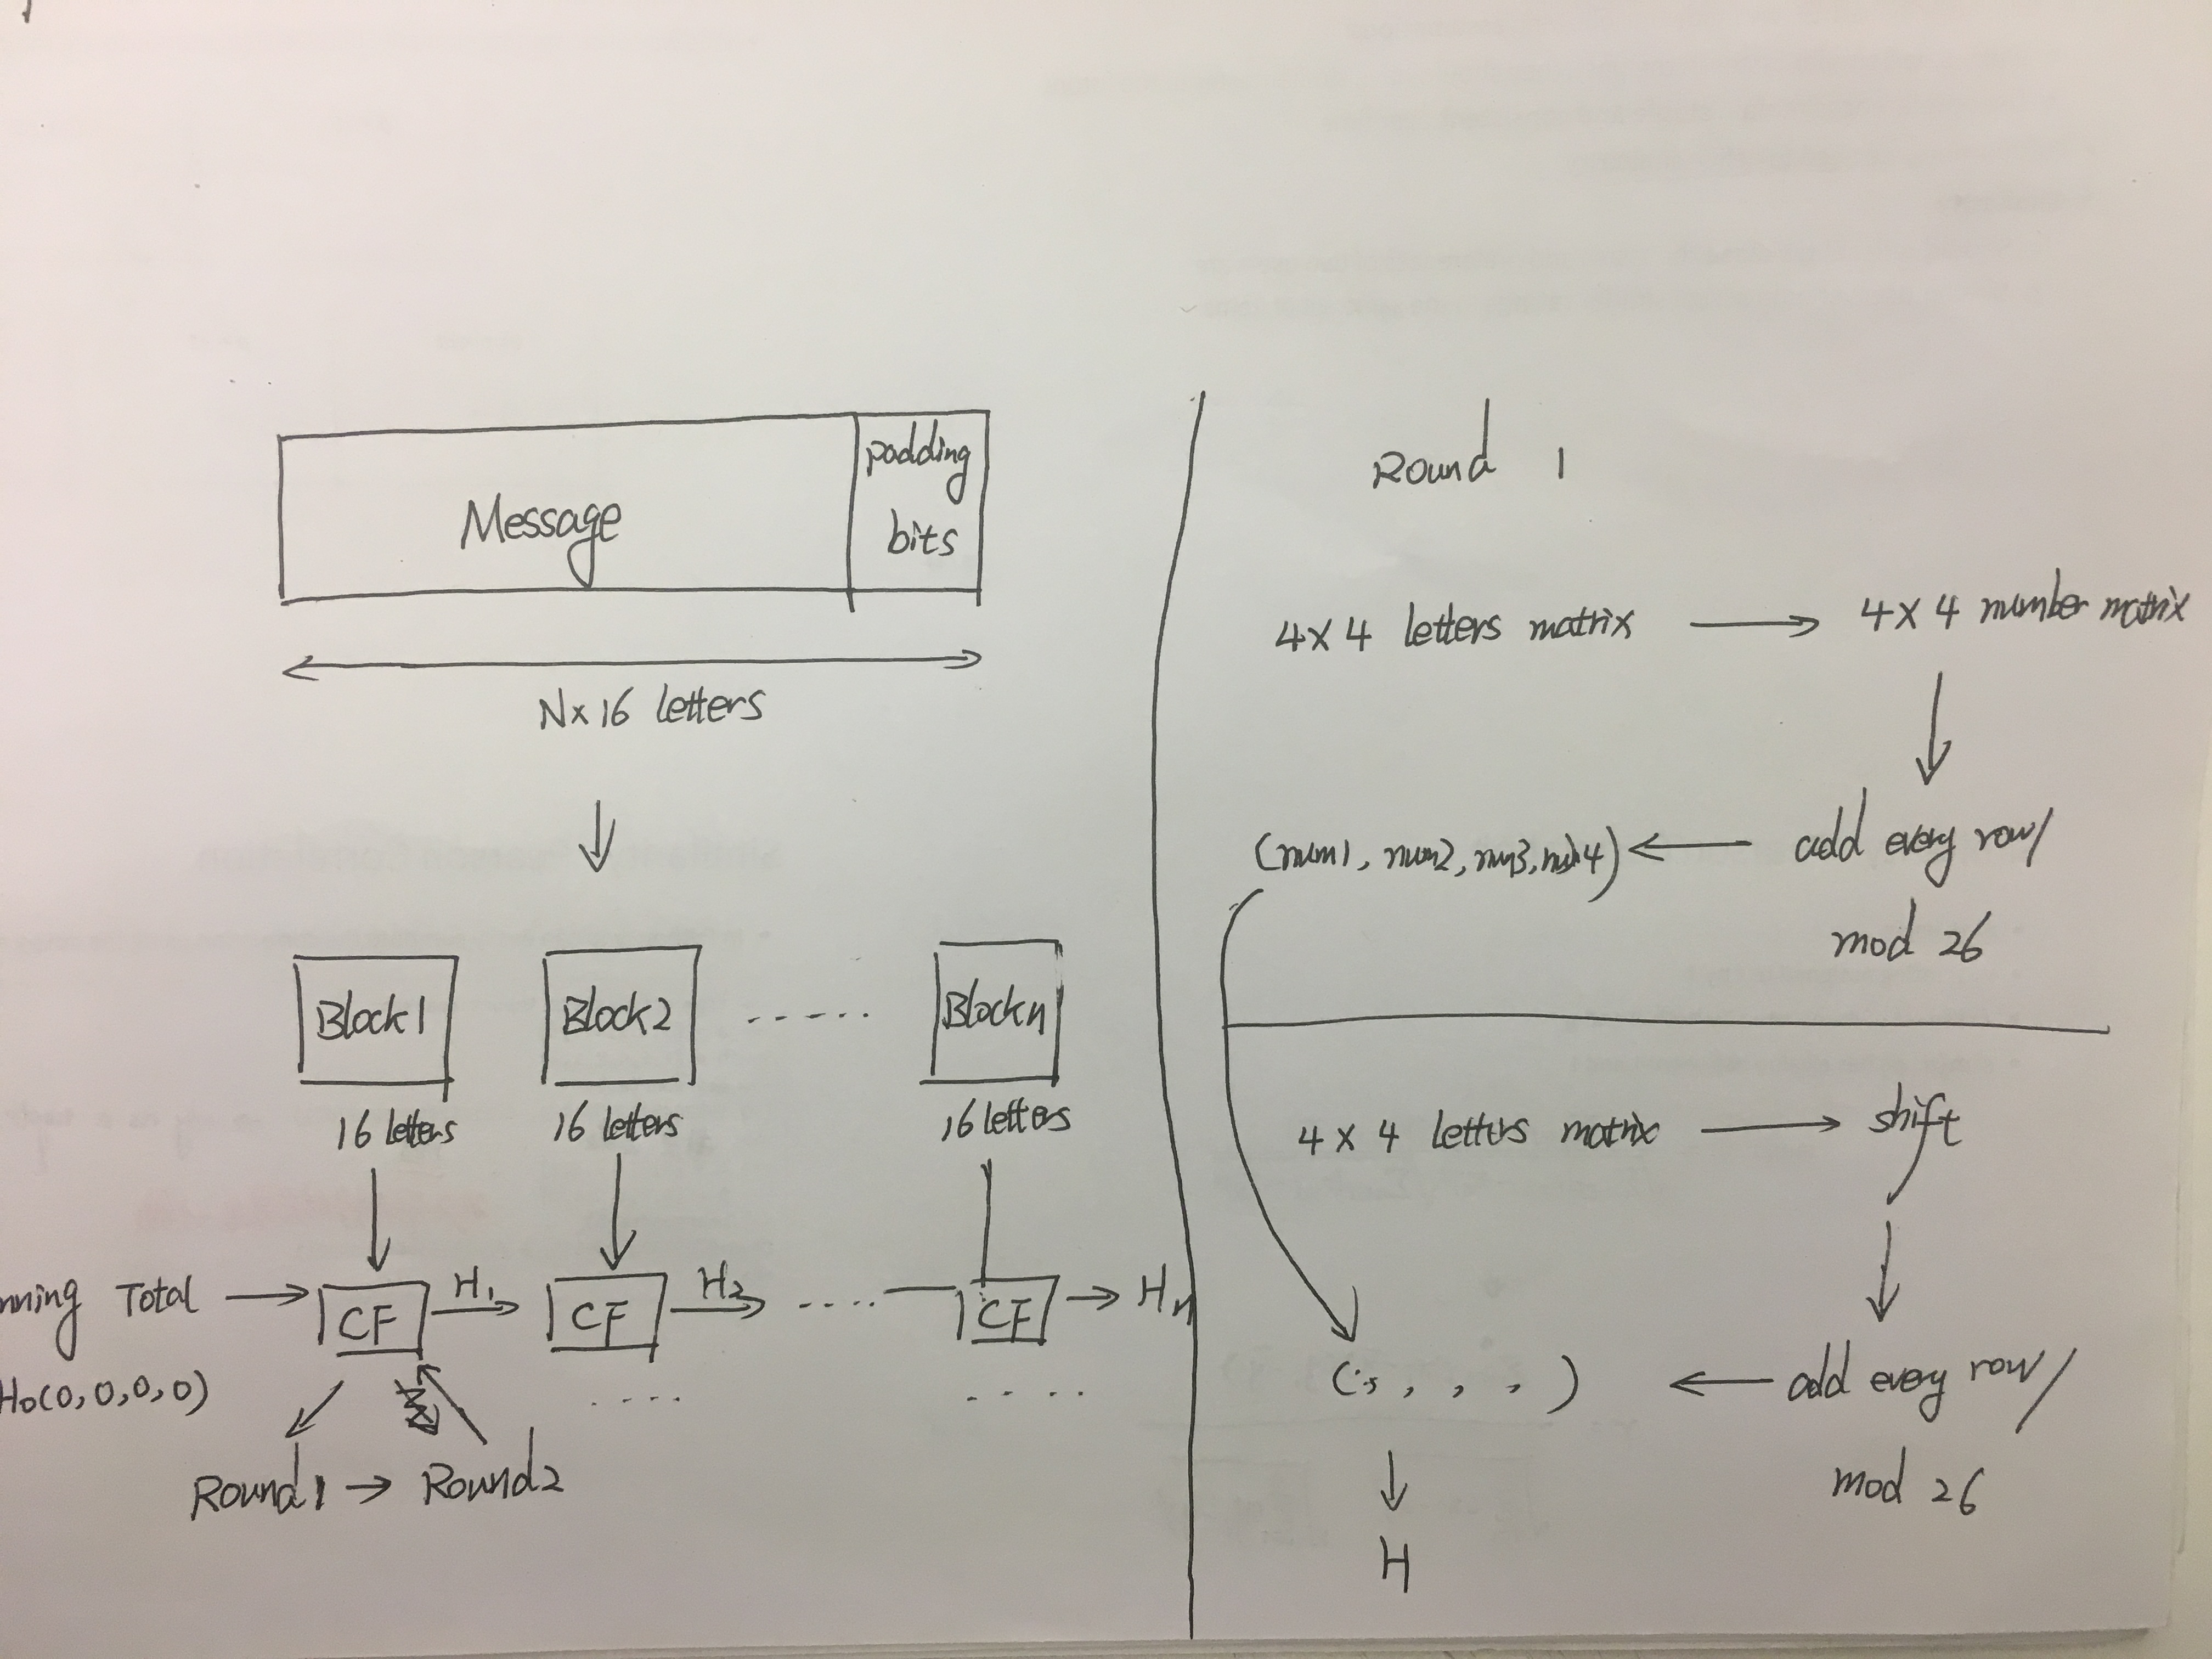 Message
padding
bits
N x 16 letters
Block1
Block2
Blockn
16 letters
16 letters
16 letters
nning Total
CF
H1
CF
H2
CF
Hn
H0(0,0,0,0)
Round1 → Round2
Round 1
4x4 letters matrix → 4x4 number matrix
(num1, num2, num3, num4) ← add every row/
mod 26
4 x 4 letters matrix → shift
( , , , ) ← add every row/
mod 26
H